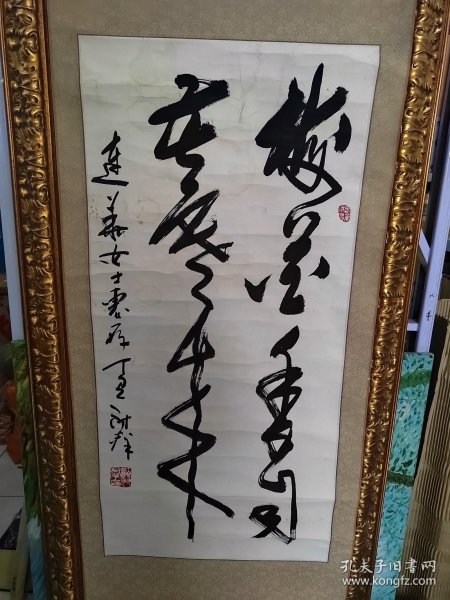 梅花香自
苦寒来
女士惠存 丁丑
孔夫子旧书网
www.kongfz.com